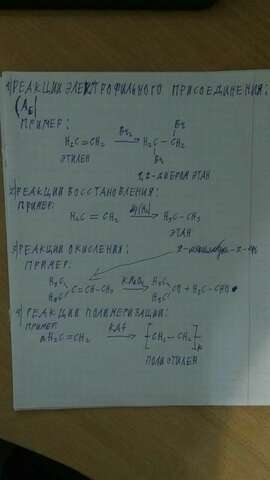 1) РЕАКЦИИ ЭЛЕКТРОФИЛЬНОГО ПРИСОЕДИНЕНИЯ:
(AE)
ПРИМЕР:
Br
H2C=CH2 Br2 H2C-CH2
Br
ЭТИЛЕН 1,2-ДИБРОМЭТАН
2) РЕАКЦИИ ВОССТАНОВЛЕНИЯ:
ПРИМЕР:
H2C=CH2 H3C-CH3
ЭТАН
3) РЕАКЦИИ ОКИСЛЕНИЯ:
ПРИМЕР:
H3C C=CH-CH3 H3C CO + H3C-CHO
H3C H3C
4) РЕАКЦИИ ПОЛИМЕРИЗАЦИИ:
ПРИМЕР:
nH2C=CH2 kat [CH2-CH2]n
ПОЛИЭТИЛЕН